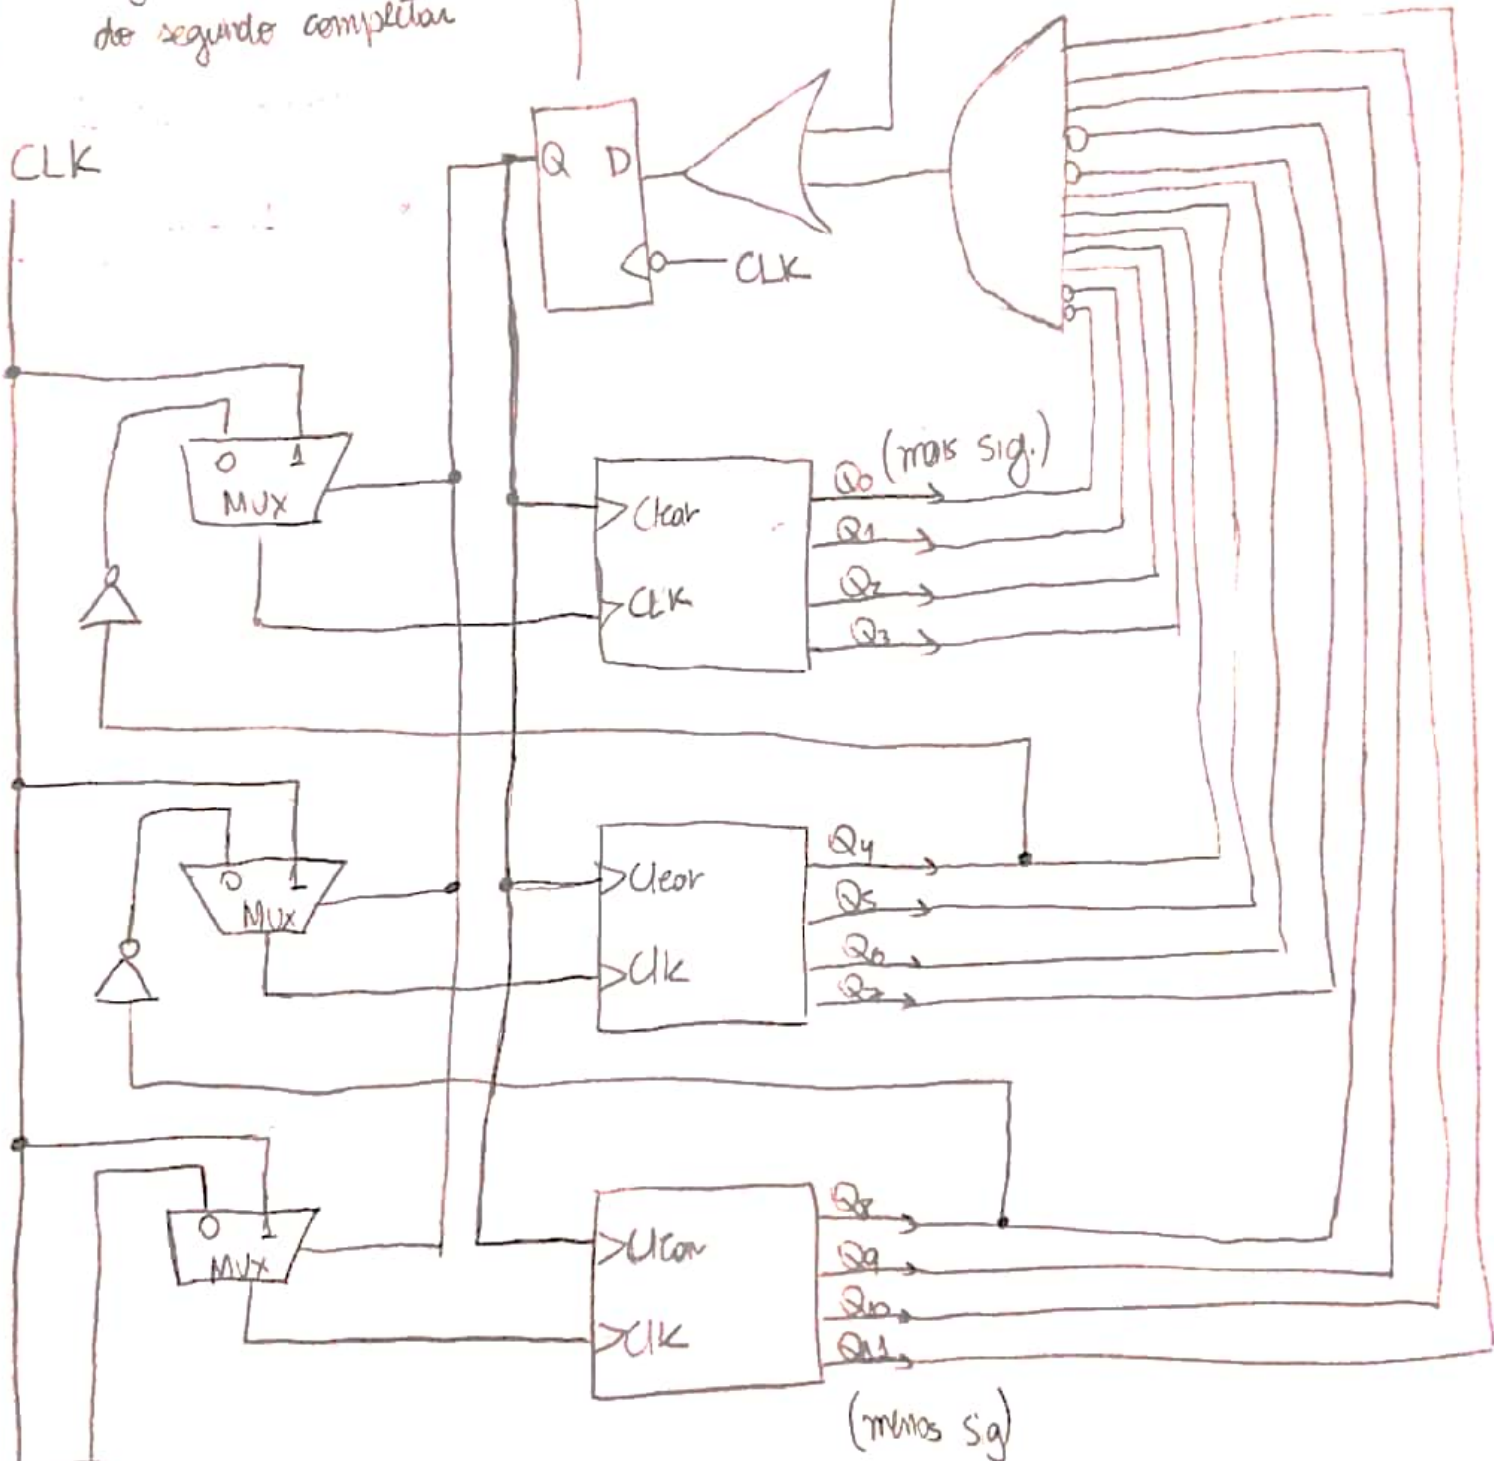 do segundo completar
CLK
Q D
CLK
0 1
MUX
Clear
CLK
Q0 (mais sig.)
Q1
Q2
Q3
0 1
MUX
Clear
Clk
Q4
Q5
Q6
Q7
0 1
MUX
Clear
Clk
Q8
Q9
Q10
Q11
(menos sig)